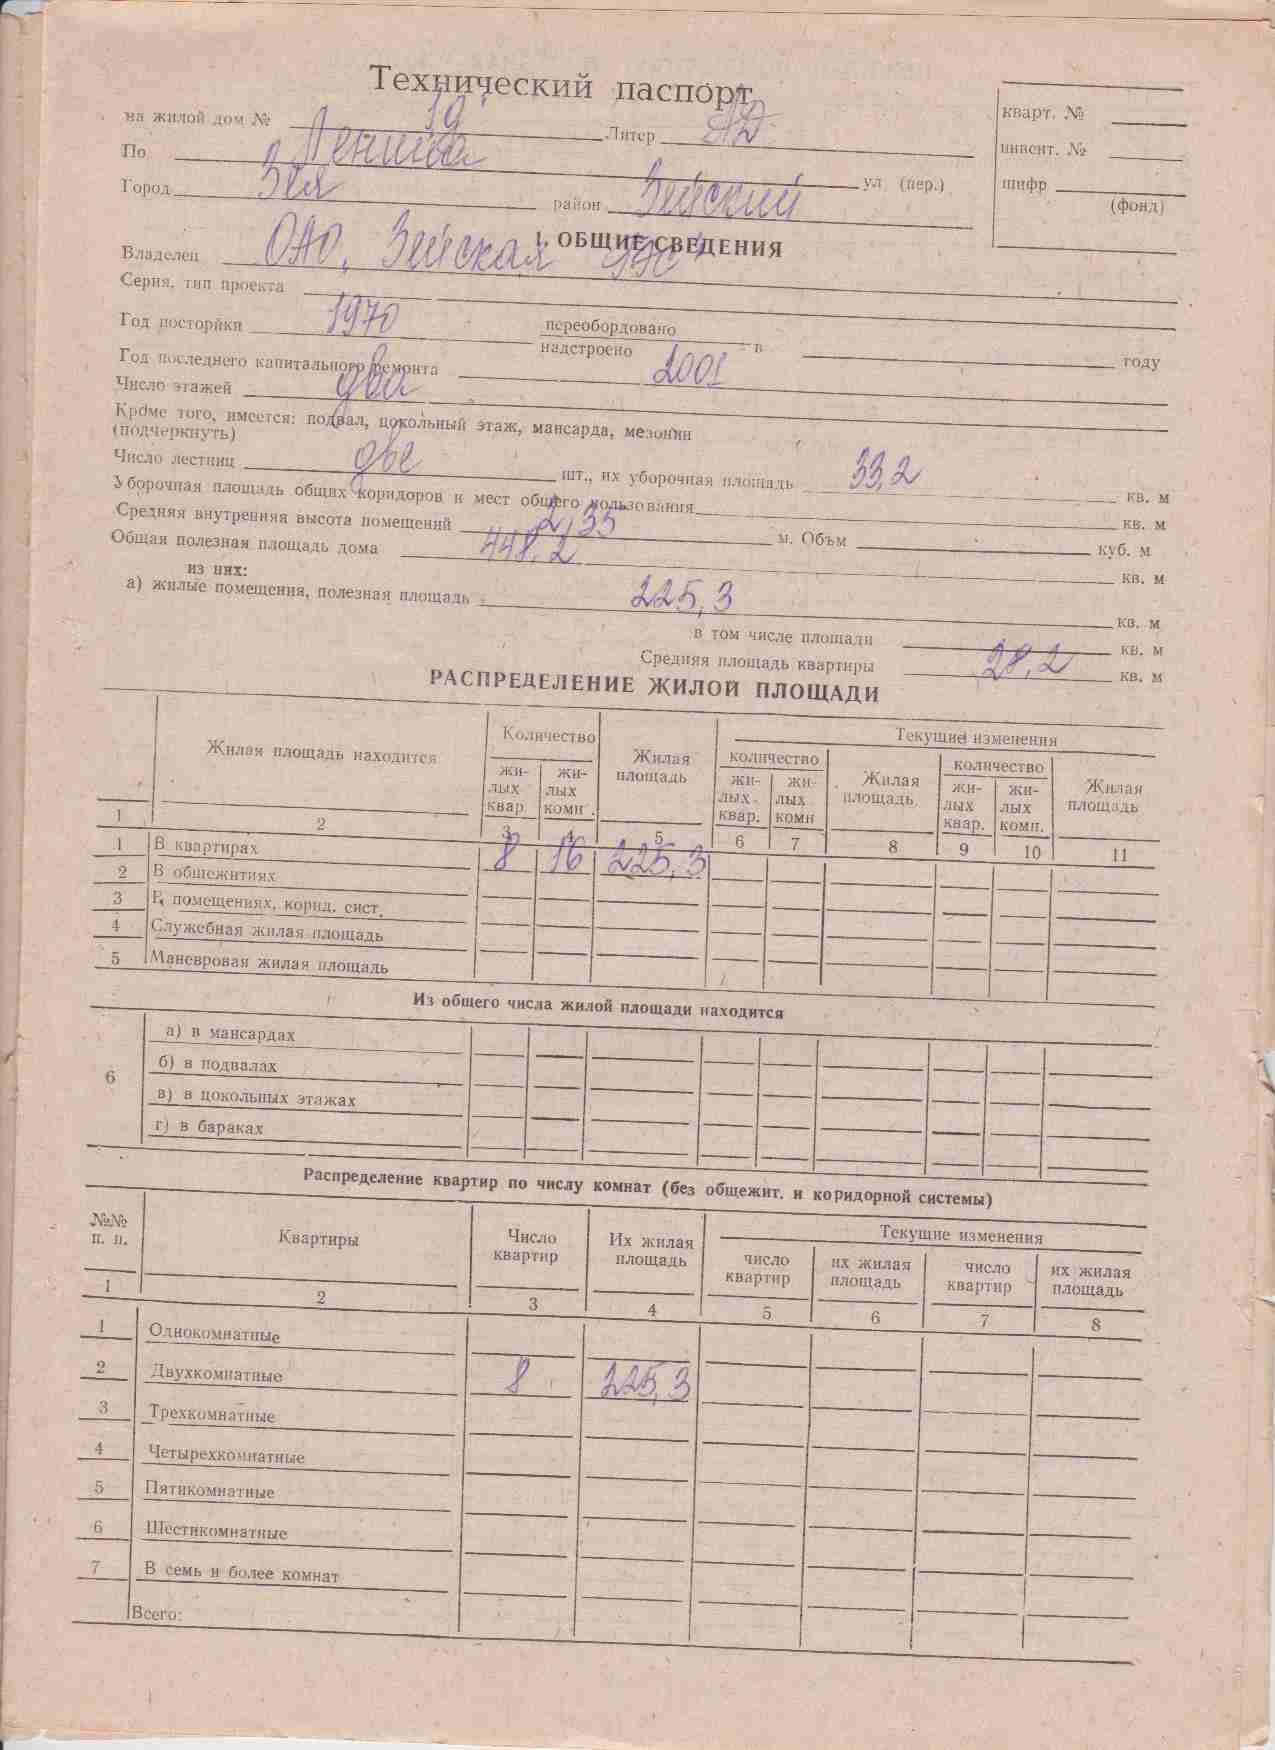 Технический паспорт
на жилой дом № 19 Литер АД
кварт. №
По Ленина ул (пер.)
инвент. №
Город Зея район Зейский
шифр
(фонд)
1. ОБЩИЕ СВЕДЕНИЯ
Владелец ОАО, Зейская
Серия, тип проекта
Год посторйки 1970 переобордовано
надстроено в году
Год последнего капитального ремонта 2001
Число этажей два
Кроме того, имеется: подвал, цокольный этаж, мансарда, мезонин
(подчеркнуть)
Число лестниц две шт., их уборочная площадь 33,2 кв. м
Уборочная площадь общих коридоров и мест общего пользования кв. м
Средняя внутренняя высота помещений 2,55 м. Объм куб. м
Общая полезная площадь дома 448,2 кв. м
из них:
а) жилые помещения, полезная площадь 225,3 кв. м
в том числе площади кв. м
Средняя площадь квартиры 28,2 кв. м
РАСПРЕДЕЛЕНИЕ ЖИЛОЙ ПЛОЩАДИ
Жилая площадь находится Количество Жилая площадь Текущие изменения
жи-лых квар. жи-лых комн. количество жи-лых квар. жи-лых комн Жилая площадь количество жи-лых квар. жи-лых комн. Жилая площадь
1 2 3 4 5 6 7 8 9 10 11
1 В квартирах 8 16 225,3
2 В общежитиях
3 В помещениях, корид. сист.
4 Служебная жилая площадь
5 Маневровая жилая площадь
Из общего числа жилой площади находится
6 а) в мансардах
б) в подвалах
в) в цокольных этажах
г) в бараках
Распределение квартир по числу комнат (без общежит. и коридорной системы)
№№ п. п. Квартиры Число квартир Их жилая площадь Текущие изменения
число квартир их жилая площадь число квартир их жилая площадь
1 2 3 4 5 6 7 8
1 Однокомнатные
2 Двухкомнатные 8 225,3
3 Трехкомнатные
4 Четырехкомнатные
5 Пятикомнатные
6 Шестикомнатные
7 В семь и более комнат
Всего: